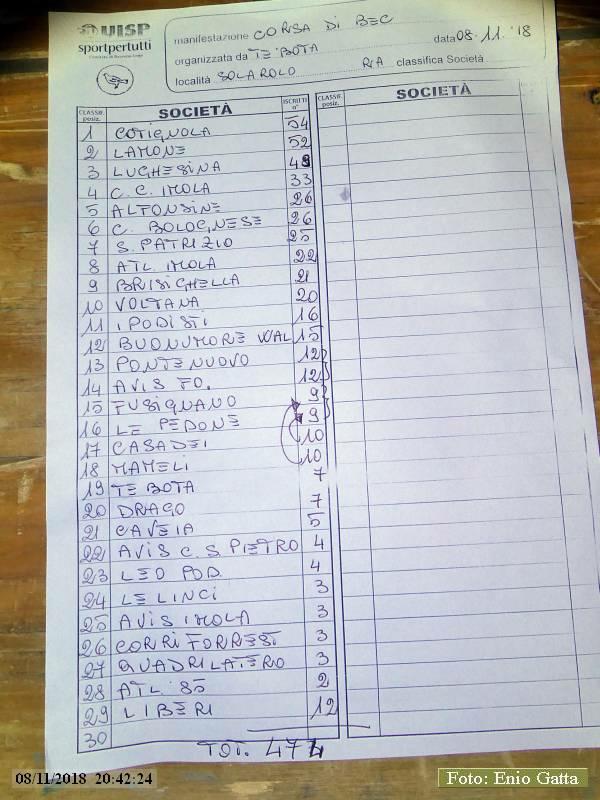 UISP
sportpertutti
manifestazione CORSA DI BEC
organizzata da TE BOTA data 08.11.'18
località SOLAROLO RA classifica Società
CLASSIF. posiz. SOCIETÀ ISCRITTI n° CLASSIF. posiz. SOCIETÀ
1 COTIGNOLA 54
2 LAMONE 52
3 LUGHESINA 49
4 C.C. IMOLA 33
5 ALFONSINE 26
6 C. BOLOGNESE 26
7 S. PATRIZIO 25
8 ATL. IMOLA 22
9 BRISIGHELLA 21
10 VOLTANA 20
11 I PODISTI 16
12 BUONUMORE VAL 15
13 PONTENUOVO 12
14 AVIS FO. 12
15 FUSIGNANO 9
16 LE PEDONE 9
17 CASADEI 10
18 MAMELI 10
19 TE BOTA 7
20 DRAGO 7
21 CAVEIA 5
22 AVIS C.S. PIETRO 4
23 LEO POD. 4
24 LE LINCI 3
25 AVIS IMOLA 3
26 CORRI FORREST 3
27 QUADRILATERO 3
28 ATL '85 2
29 LIBERI 12
30
TOT. 474
08/11/2018 20:42:24
Foto: Enio Gatta